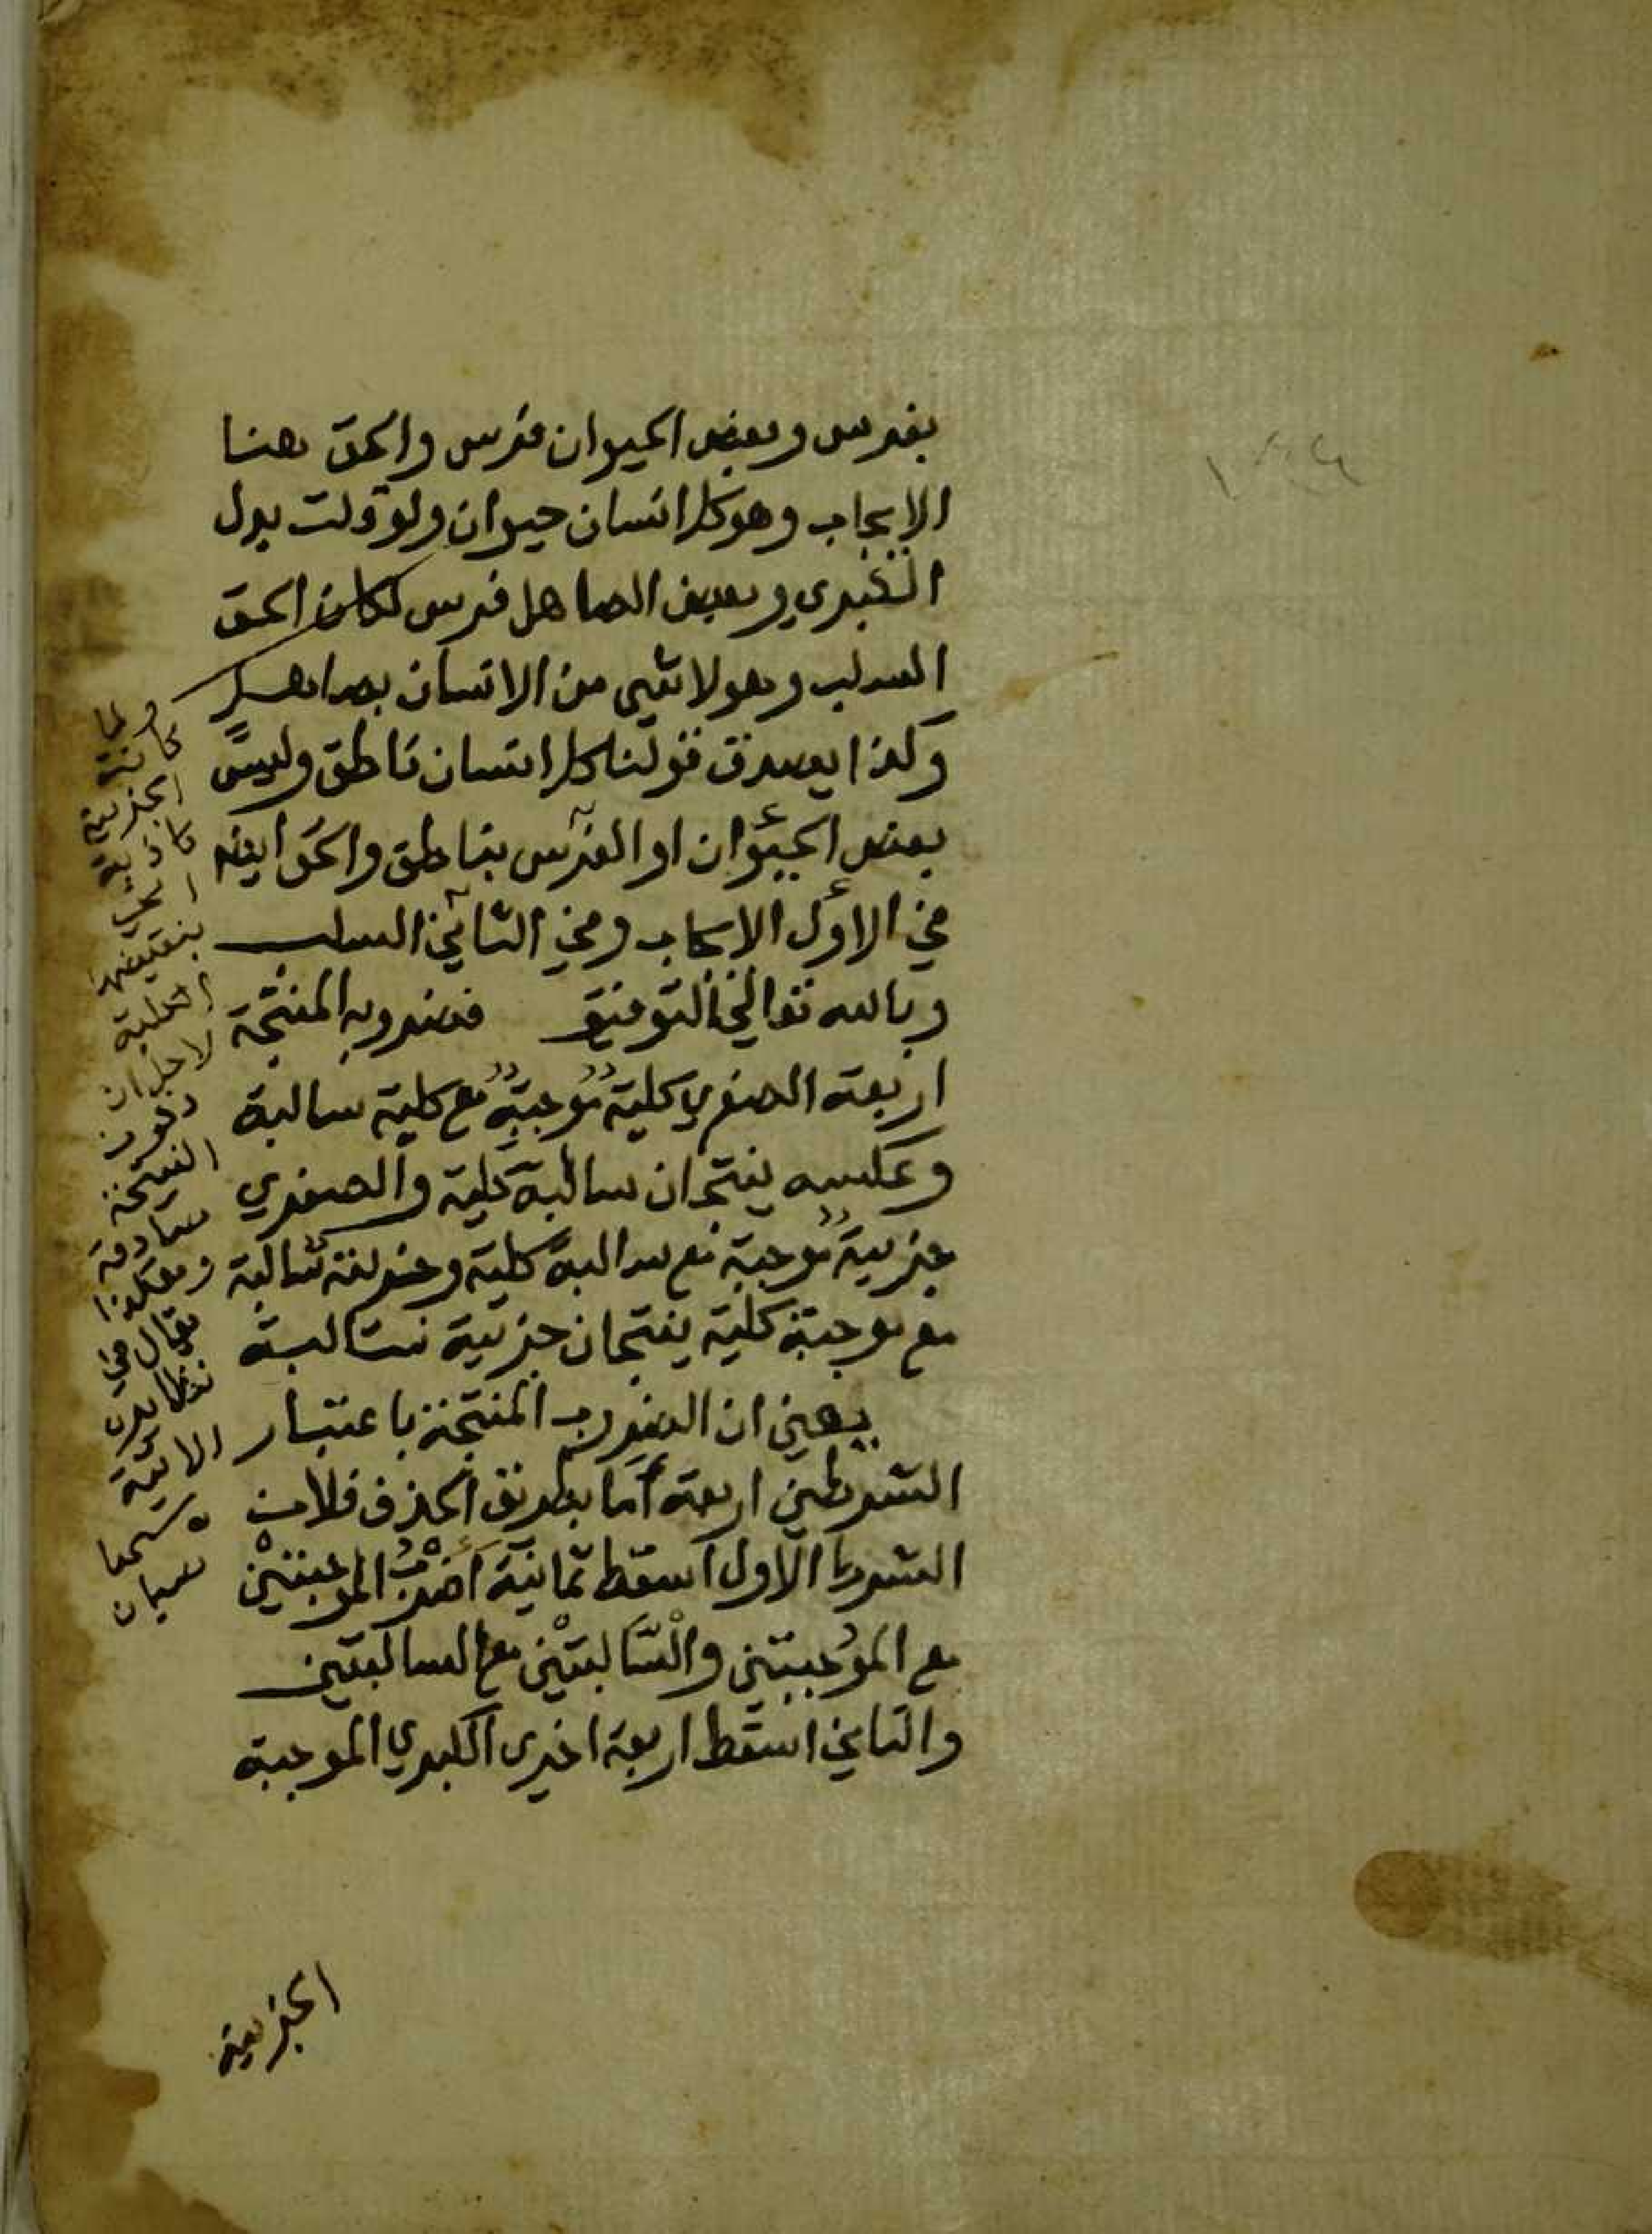 بفرس وبعض الحيوان فرس والحق هنا
الايجاب وهو كل انسان حيوان ولو قلت بدل
الكبري وبعض الصاهل فرس لكان الحق
السلب وهو لا شي من الانسان بصاهل
وكذا يصدق قولنا كل انسان ناطق وليس
بعض الحيوان او الفرس بناطق والحق ايضا
في الاول الايجاب وفي الثاني السلب
وبالله تعالي التوفيق فضروبه المنتجة
اربعة الصغري كلية موجبة مع كلية سالبة
وعكسه ينتجان سالبة كلية والصغري
جزيية موجبة مع سالبة كلية وجزيية سالبة
مع موجبة كلية ينتجان جزيية سالبة
يعني ان الضروب المنتجة باعتبار
الشرطين اربعة اما بطريق الحذف فلان
الشرط الاول اسقط ثمانية اضرب الموجبتين
مع الموجبتين والسالبتين مع السالبتين
والثاني اسقط اربعة اخري الكبري الموجبة
الجزيية
ولما
كانت
الجزيية
كاذبة
بنقيضها
الكلية
لاجل ان
تكون
النتيجة
صادقة
وهكذا
يقال في
نظايره
الاتية
١٠٤